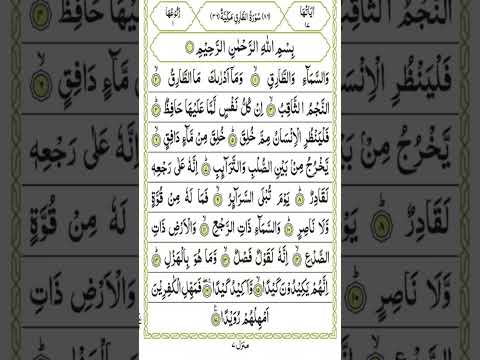 اٰیَاتُهَا ١٧
(٨٦) سُوْرَةُ الطَّارِقِ مَكِّيَّةٌ (٣٦)
رُكُوْعُهَا ١
بِسْمِ اللّٰهِ الرَّحْمٰنِ الرَّحِيْمِ
وَالسَّمَآءِ وَالطَّارِقِ ۙ﴿١﴾ وَمَاۤ اَدْرٰىكَ مَا الطَّارِقُ ۙ﴿٢﴾
النَّجْمُ الثَّاقِبُ ۙ﴿٣﴾ اِنْ كُلُّ نَفْسٍ لَّمَّا عَلَيْهَا حَافِظٌ ؕ﴿٤﴾
فَلْيَنْظُرِ الْاِنْسَانُ مِمَّ خُلِقَ ؕ﴿٥﴾ خُلِقَ مِنْ مَّآءٍ دَافِقٍ ۙ﴿٦﴾
يَّخْرُجُ مِنْۢ بَيْنِ الصُّلْبِ وَالتَّرَآئِبِ ؕ﴿٧﴾ اِنَّهٗ عَلٰى رَجْعِهٖ
لَقَادِرٌ ؕ﴿٨﴾ يَوْمَ تُبْلَى السَّرَآئِرُ ۙ﴿٩﴾ فَمَا لَهٗ مِنْ قُوَّةٍ
وَّلَا نَاصِرٍ ؕ﴿١٠﴾ وَالسَّمَآءِ ذَاتِ الرَّجْعِ ۙ﴿١١﴾ وَالْاَرْضِ ذَاتِ
الصَّدْعِ ۙ﴿١٢﴾ اِنَّهٗ لَقَوْلٌ فَصْلٌ ۙ﴿١٣﴾ وَّمَا هُوَ بِالْهَزْلِ ؕ﴿١٤﴾
اِنَّهُمْ يَكِيْدُوْنَ كَيْدًا ۙ﴿١٥﴾ وَّاَكِيْدُ كَيْدًا ۚۖ﴿١٦﴾ فَمَهِّلِ الْكٰفِرِيْنَ
اَمْهِلْهُمْ رُوَيْدًا ﴿١٧﴾
منزل ٧